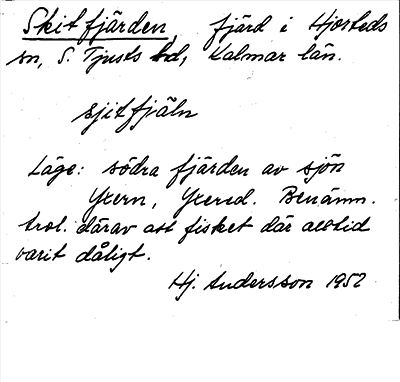 Skitfjärden, fjärd i Hjorteds
sn, S. Tjusts hd, Kalmar län.
sjitfjäln
Läge: södra fjärden av sjön
Yxern, Yxered. Benämn.
trol. därav att fisket där alltid
varit dåligt.
Hj. Andersson 1952